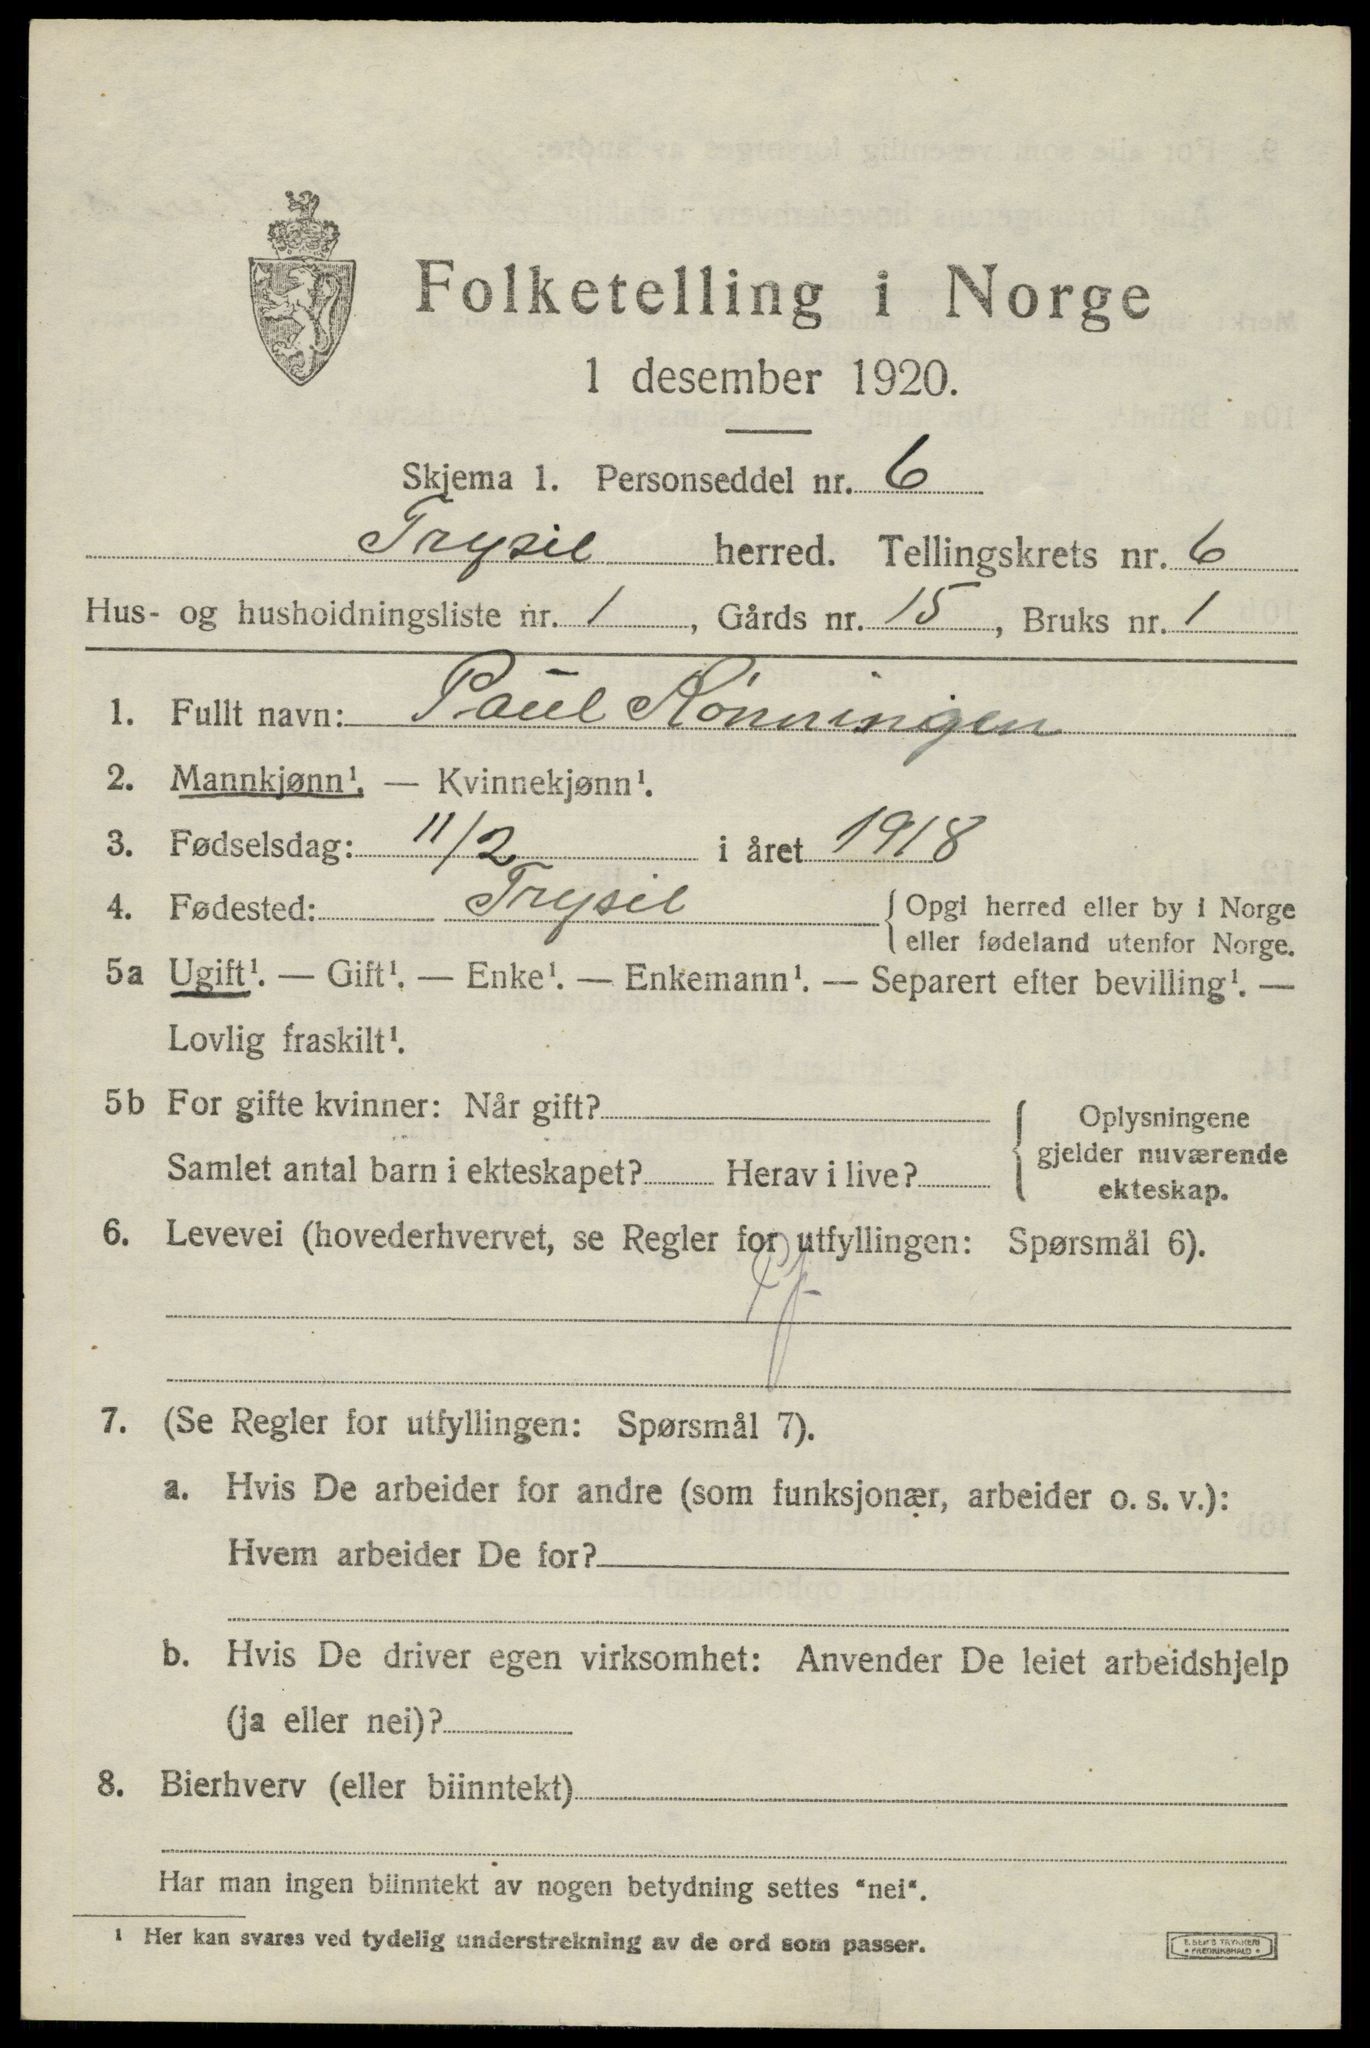 Folketelling i Norge
1 desember 1920.
Skjema 1. Personseddel nr. 6
Trysil herred. Tellingskrets nr. 6
Hus- og husholdningsliste nr. 1, Gårds nr. 15, Bruks nr. 1
1. Fullt navn: Paul Rönningen
2. Mannkjønn¹. — Kvinnekjønn¹.
3. Fødselsdag: 11/2 i året 1918
4. Fødested: Trysil { Opgi herred eller by i Norge
eller fødeland utenfor Norge.
5a Ugift¹. — Gift¹. — Enke¹. — Enkemann¹. — Separert efter bevilling¹. —
Lovlig fraskilt¹.
5b For gifte kvinner: Når gift? { Oplysningene
gjelder nuværende
Samlet antal barn i ekteskapet? Herav i live? ekteskap.
6. Levevei (hovederhvervet, se Regler for utfyllingen: Spørsmål 6).
7. (Se Regler for utfyllingen: Spørsmål 7).
a. Hvis De arbeider for andre (som funksjonær, arbeider o. s. v.):
Hvem arbeider De for?
b. Hvis De driver egen virksomhet: Anvender De leiet arbeidshjelp
(ja eller nei)?
8. Bierhverv (eller biinntekt)
Har man ingen biinntekt av nogen betydning settes "nei".
¹ Her kan svares ved tydelig understrekning av de ord som passer.
E. SEM'S TRYKKERI
FREDRIKSHALD